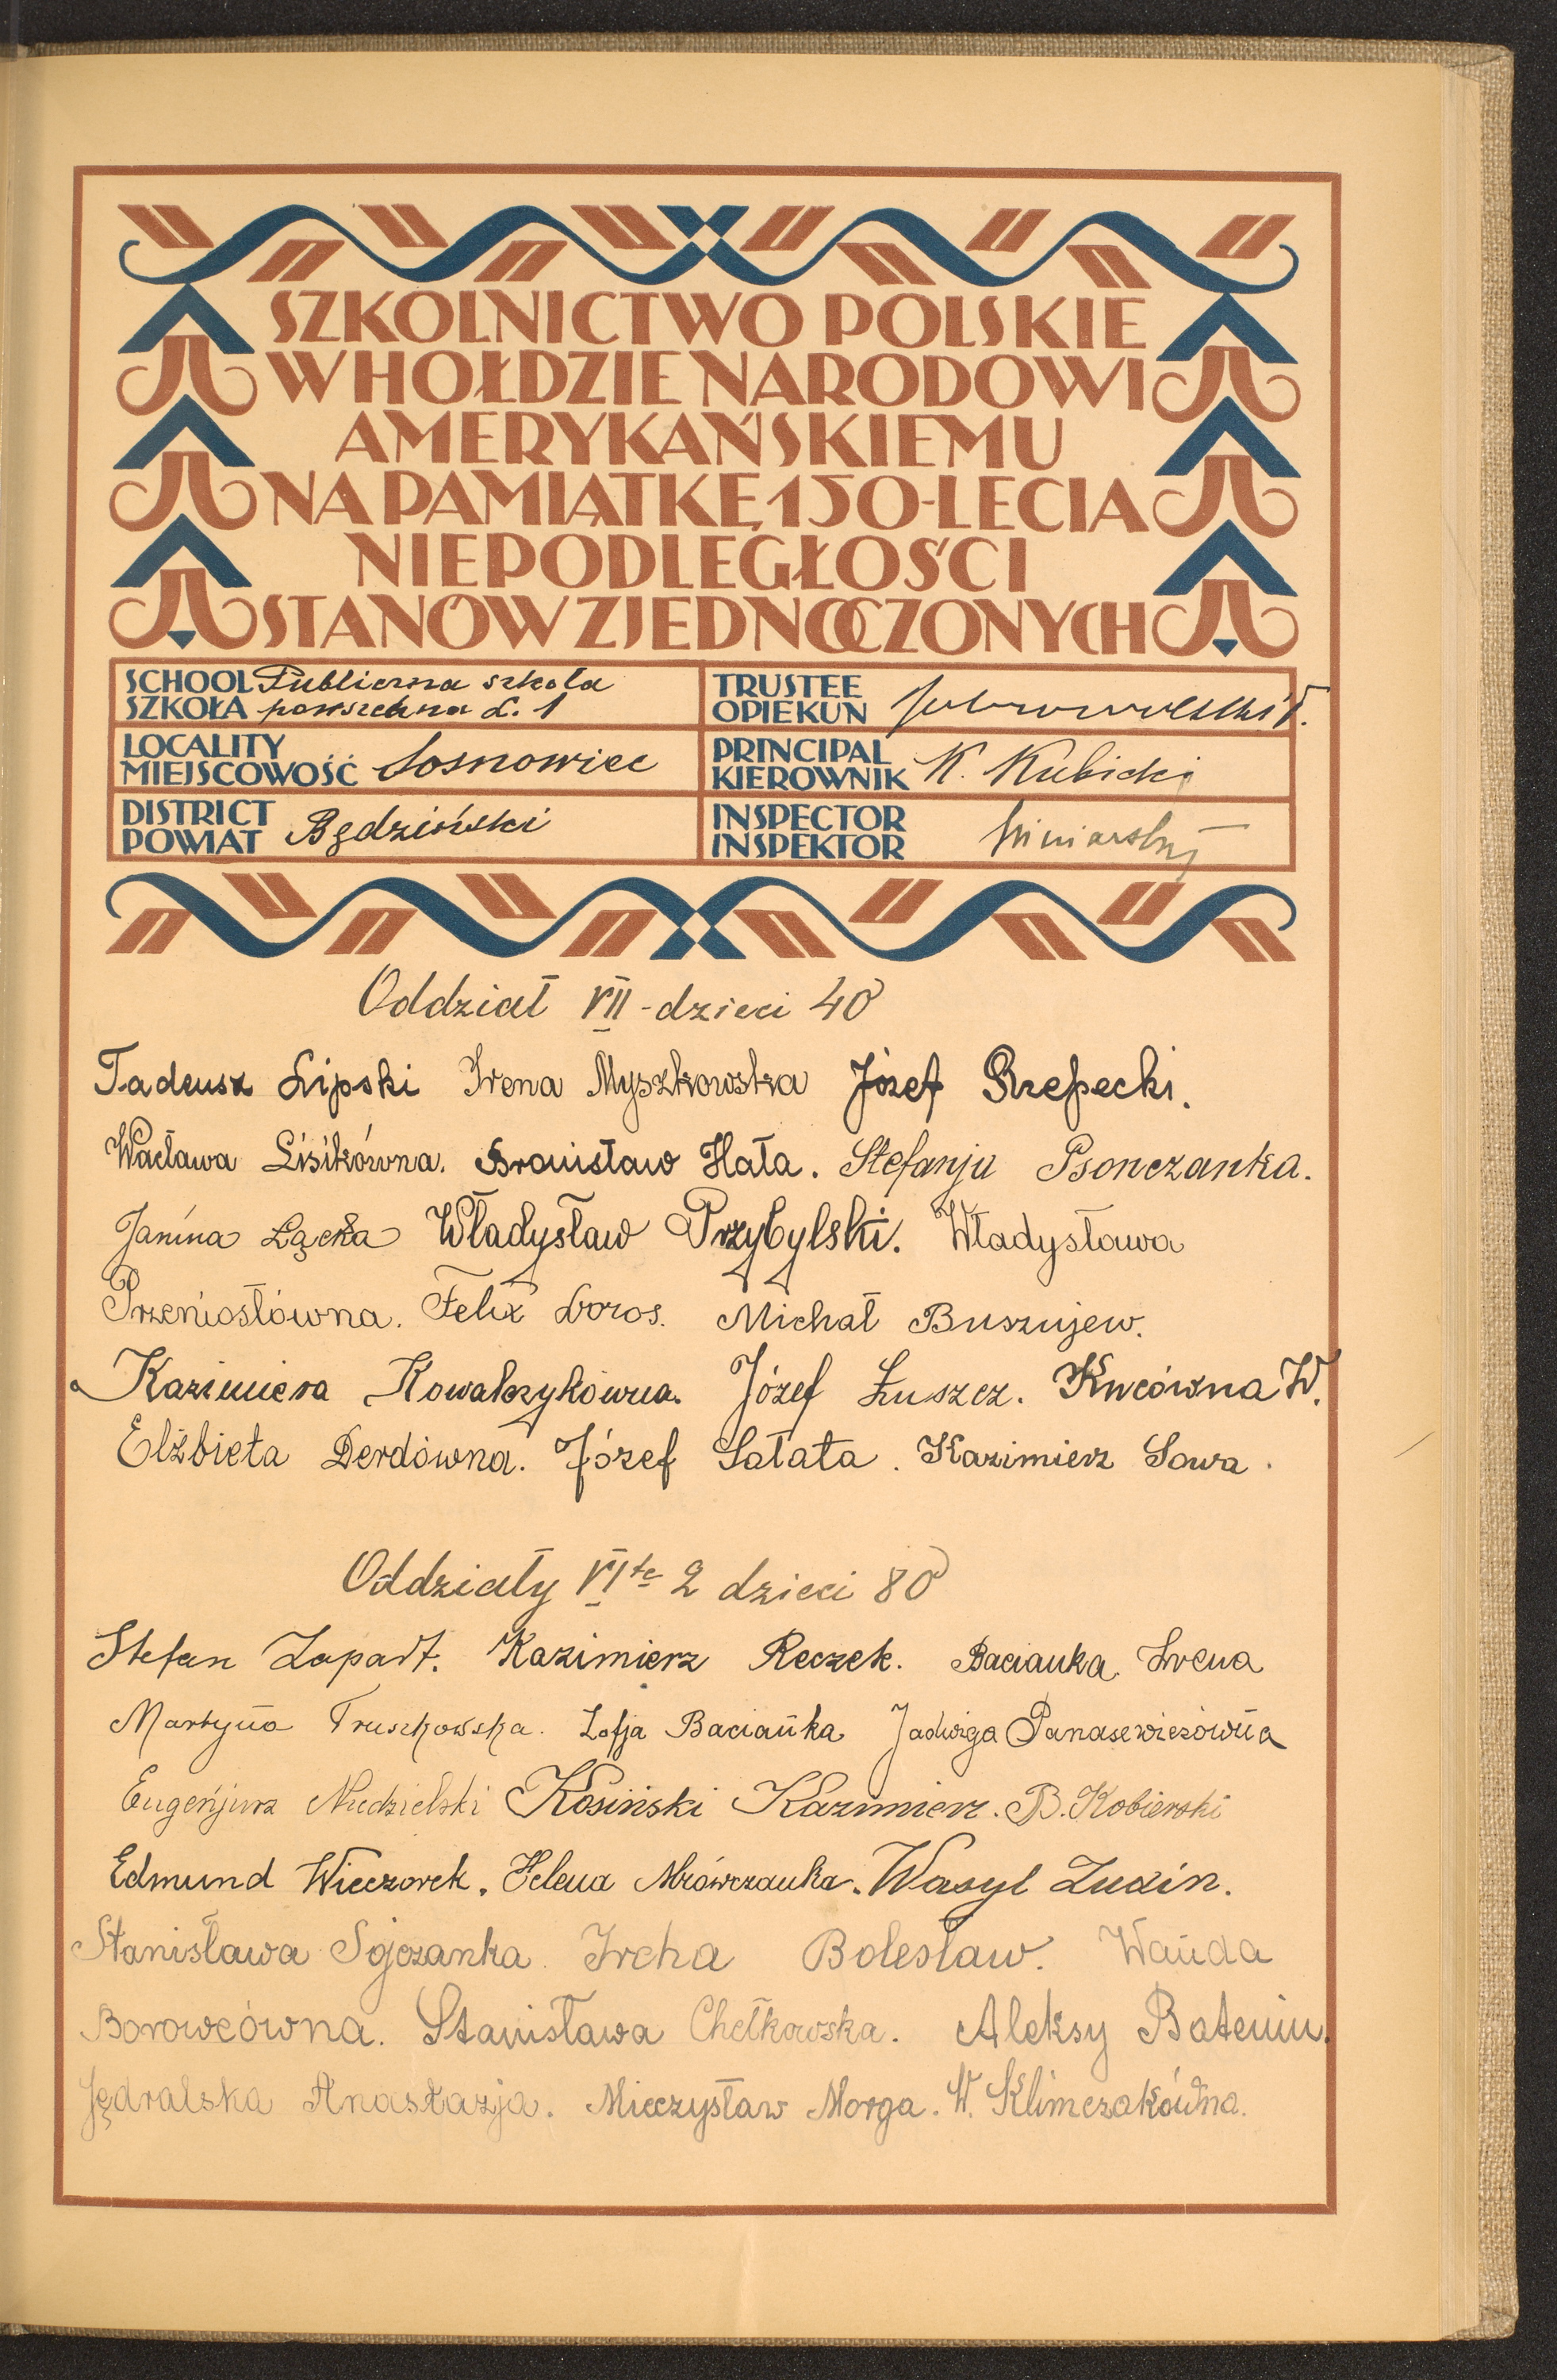 SZKOLNICTWO POLSKIE
W HOŁDZIE NARODOWI
AMERYKAŃSKIEMU
NA PAMIĄTKĘ 150-LECIA
NIEPODLEGŁOŚCI
STANÓW ZJEDNOCZONYCH
SCHOOL Publiczna szkoła
SZKOŁA powszechna L. 1
TRUSTEE
OPIEKUN
LOCALITY
MIEJSCOWOŚĆ Sosnowiec
PRINCIPAL
KIEROWNIK K. Kubicki
DISTRICT
POWIAT Będziński
INSPECTOR
INSPEKTOR
Oddział VII - dzieci 40
Tadeusz Lipski Irena Myszkowska Józef Rzepecki.
Wacława Lisikówna. Bronisław Hała. Stefanja Psonczanka.
Janina Łącka Władysław Przybylski. Władysława
Przeniosłówna. Felix Doros. Michał Buszujew.
Kazimiera Kowalczykówna. Józef Łuszcz. Kucówna W.
Elżbieta Derdówna. Józef Sałata. Kazimierz Sowa.
Oddziały VI te 2 dzieci 80
Stefan Zapart. Kazimierz Reczek. Bacianka Irena
Martyna Truszkowska. Zofja Bacianka Jadwiga Panasewiczówna
Eugenjusz Niedzielski Kosiński Kazimierz. B. Kobierski
Edmund Wieczorek. Helena Mrówczanka. Wasyl Zuxin.
Stanisława Sojczanka. Ircha Bolesław. Wanda
Borowcówna. Stanisława Chełkowska. Aleksy Batenin.
Jędralska Anastazja. Mieczysław Morga. W. Klimczakówna.